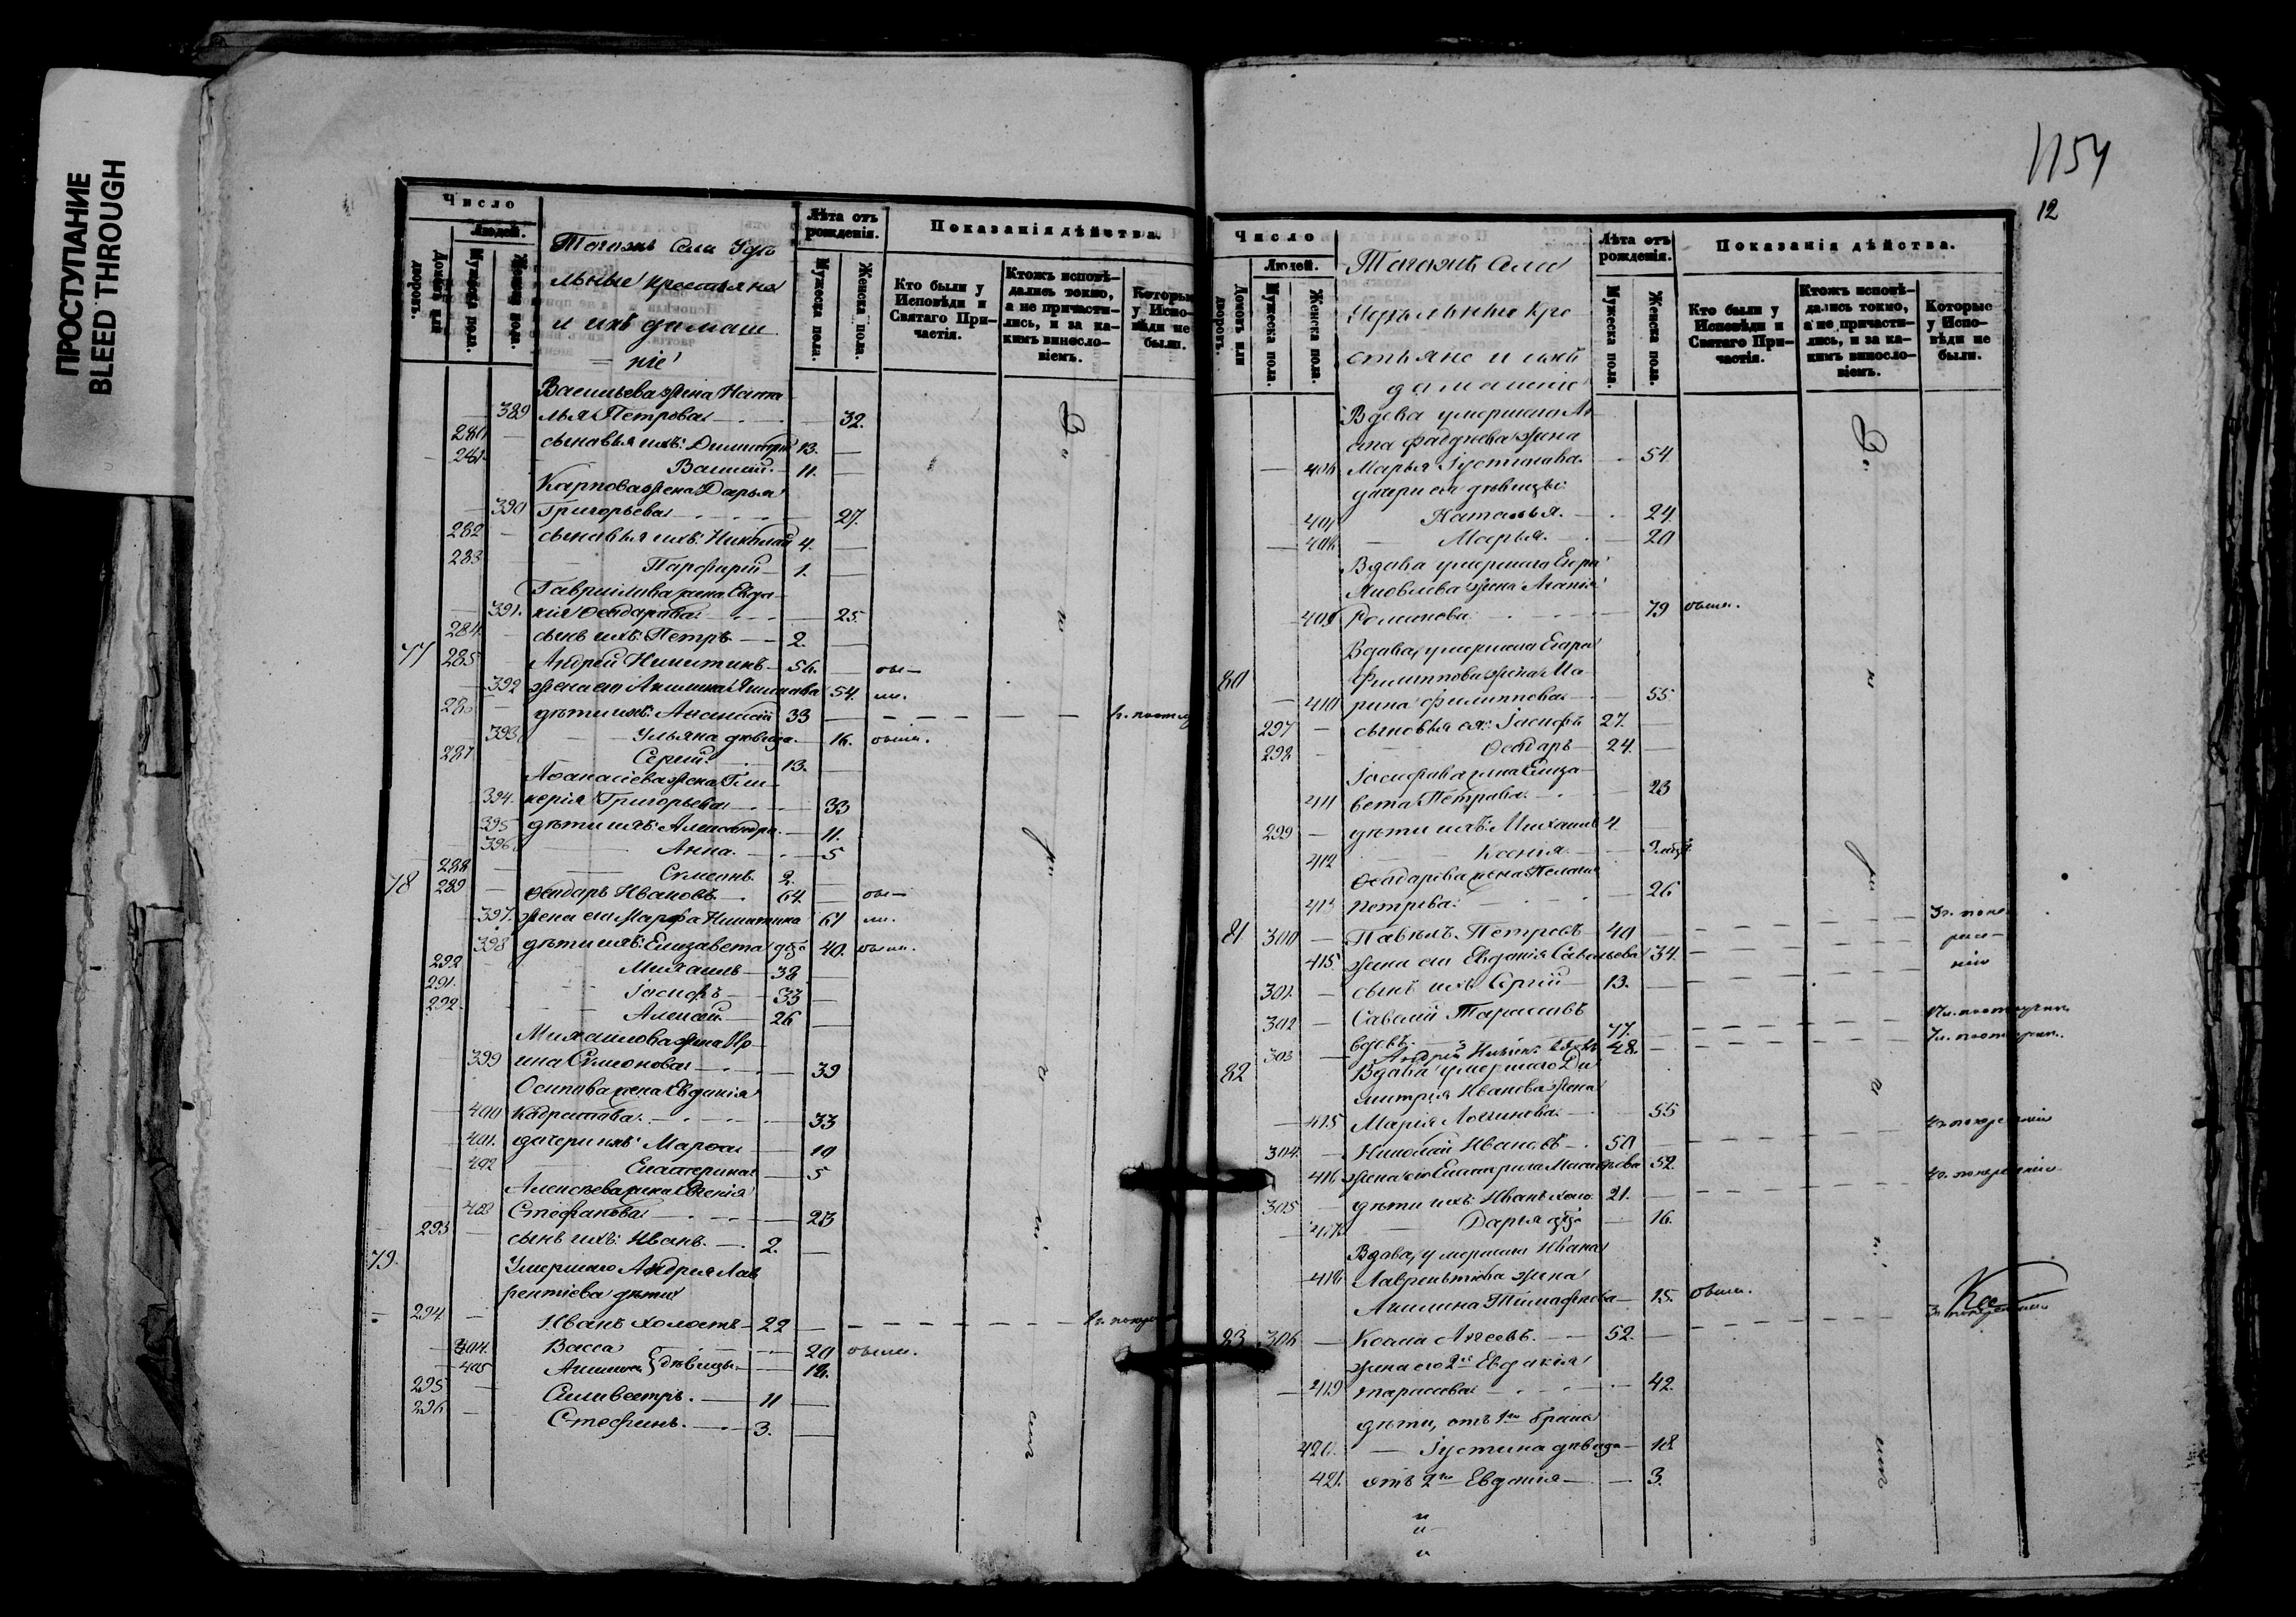 ПРОСТУПАНИЕ
BLEED THROUGH
Число
Людей.
Домовъ или дворовъ.
Мужеска пола.
Женска пола.
Тогожъ Села Удѣ
льные крестьяне
и ихъ домаш
ніе
Лѣта отъ рожденія.
Мужеска пола.
Женска пола.
Показанія дѣйства.
Кто были у Исповѣди и Святаго При-частія.
Ктожъ исповѣ-дались токмо, а не причасти-лись, и за ка-кимъ винословіемъ.
Которые у Испо-вѣди не были.
Васильева жена Ната
389 лья Петрова 32.
280 сыновья ихъ: Димитрій 13.
281. Василій 11.
Карпова жена Дарья
390 Григорьева 27.
282 сыновья ихъ: Николай 4.
283 Парфирій 1.
Гавриилова жена Евдо
391. кія Ѳеодорова 25.
284. сынъ ихъ: Петръ 2.
77 285 Андрей Никитинъ 56. бы
392 жена его Акилина 54. ли.
286 дѣти ихъ: Аѳанасій 33
393. Ульяна дѣвица 16. были.
287 Сергій 13.
Аѳанасіева жена Гли
394. керія Григорьева 33
395 дѣти ихъ: Александра 11.
396. Анна 5
288 Симеонъ 2.
78 289 Ѳеодоръ Ивановъ 64. бы
397. жена его Марфа Никитина 61 ли.
398 дѣти ихъ: Елизавета 40. были.
292 Михаилъ 38
291. Іосифъ 33
292. Алексей 26
Михаилова жена Ир
399 ина Симонова 39
Осипова жена Евдокія
400 33
401. дочери ихъ: Марѳа 10
402 Екатерина 5
Алексѣева жена Евгенія
403 Стефанова 23
293 сынъ ихъ: Иванъ 2.
79. Умершаго Андрея Лав
рентіева дѣти
294 Иванъ холостъ 22
404. Васса 20 были.
405 дѣвицы
295 Сильвестръ. 11
296 Стефанъ. 3.
1154
12
Число
Людей.
Домовъ или дворовъ.
Мужеска пола.
Женска пола.
Тогожъ Села
Удѣльные Кре
стьяне и ихъ
домашніе
Лѣта отъ рожденія.
Мужеска пола.
Женска пола.
Показанія дѣйства.
Кто были у Исповѣди и Святаго При-частія.
Ктожъ исповѣ-дались токмо, а не причасти-лись, и за ка-кимъ винословіемъ.
Которые у Испо-вѣди не были.
Вдова умершаго
жена
406 Марья Іустинова 54
дочери ея дѣвицы:
407 Наталья. 24
408 Марья 20
Вдова умершаго
Яковлева жена Агапія
409 Романова 79 были.
Вдова, умершаго Егора
80 Филиппова жена Ма
410 рина Филиппова 55
297 сыновья ея: Іосифъ 27.
298 Ѳеодоръ 24.
Іосифова жена Елиза
411 вета Петрова 23
299 дѣти ихъ: Михаилъ 4.
412 Ксенія
Ѳеодорова жена Пелагія
413 Петрова 26
81 300 Павелъ Петровъ 40
415. жена его Евдокія Савельева 34.
301. сынъ ихъ Сергій 13.
302 Савелій Тарасовъ
вдовъ. 77.
303 Андрей 48.
82 Вдова умершаго Ди
митрія Иванова жена
415 Марія Логинова 55
304. Николай Ивановъ 50
416 жена его Екатерина 52
305 дѣти ихъ: Иванъ холо. 21.
417 Дарья 16.
Вдова, умершаго Ивана
418 Лаврентіева жена
Акилина Тимофеева были.
83 306 Косма 52.
жена его 2я Евдокія
419 Тарасова 42.
дѣти, отъ 1го брака
420. Іустина дѣвица 18
421. отъ 2го Евдокія 3.